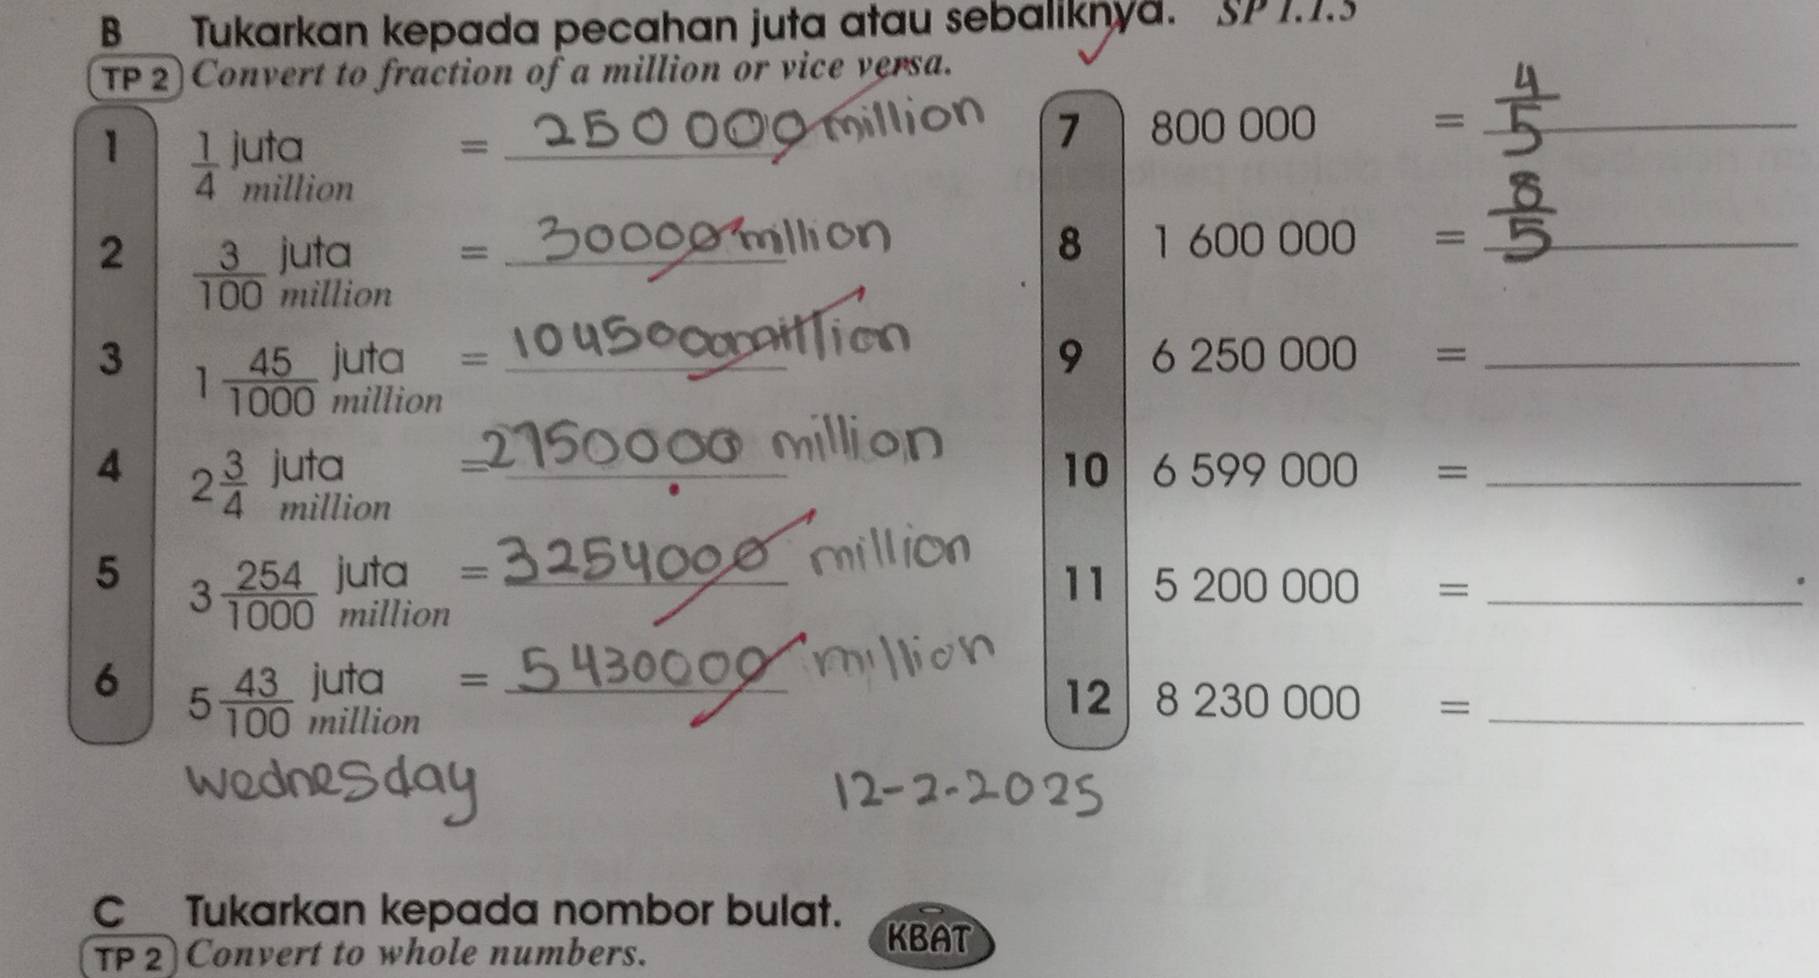 B Tukarkan kepada pecahan juta atau sebaliknya. SP 1.1.5
TP 2 Convert to fraction of a million or vice versa.
1 1/4 juta million = 250 000 million
2 3/100 juta million = 30000 million
3 1 45/1000 juta million = 1045000 million
4 2 3/4 juta million = 2750000 million
5 3 254/1000 juta million = 3254000 million
6 5 43/100 juta million = 5430000 million
7 800 000 = 4/5
8 1 600 000 = 8/5
9 6 250 000 = 
10 6 599 000 = 
11 5 200 000 = 
12 8 230 000 = 
Wednesday 12-2-2025
C Tukarkan kepada nombor bulat. KBAT
TP 2 Convert to whole numbers.